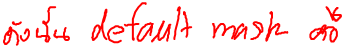 ดังนั้น default mask คือ